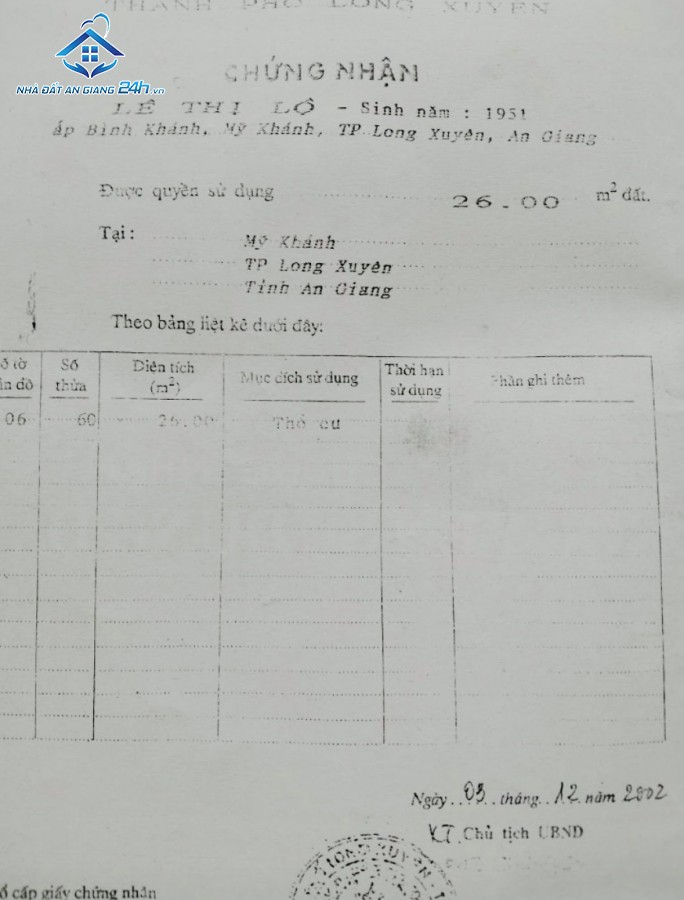 THÀNH PHỐ LONG XUYÊN
NHÀ ĐẤT AN GIANG 24h.vn
CHỨNG NHẬN
LÊ THỊ LỘ - Sinh năm : 1951
ấp Bình Khánh, Mỹ Khánh, TP Long Xuyên, An Giang
Được quyền sử dụng 26.00 m² đất.
Tại : Mỹ Khánh
TP Long Xuyên
Tỉnh An Giang
Theo bảng liệt kê dưới đây:
ố tờ | Số thửa | Diện tích (m²) | Mục đích sử dụng | Thời hạn sử dụng | Phần ghi thêm
06 | 60 | 26.00 | Thổ cư
Ngày..03..tháng..12.năm 2002
KT. Chủ tịch UBND
LONG XUYÊN
ổ cấp giấy chứng nhận